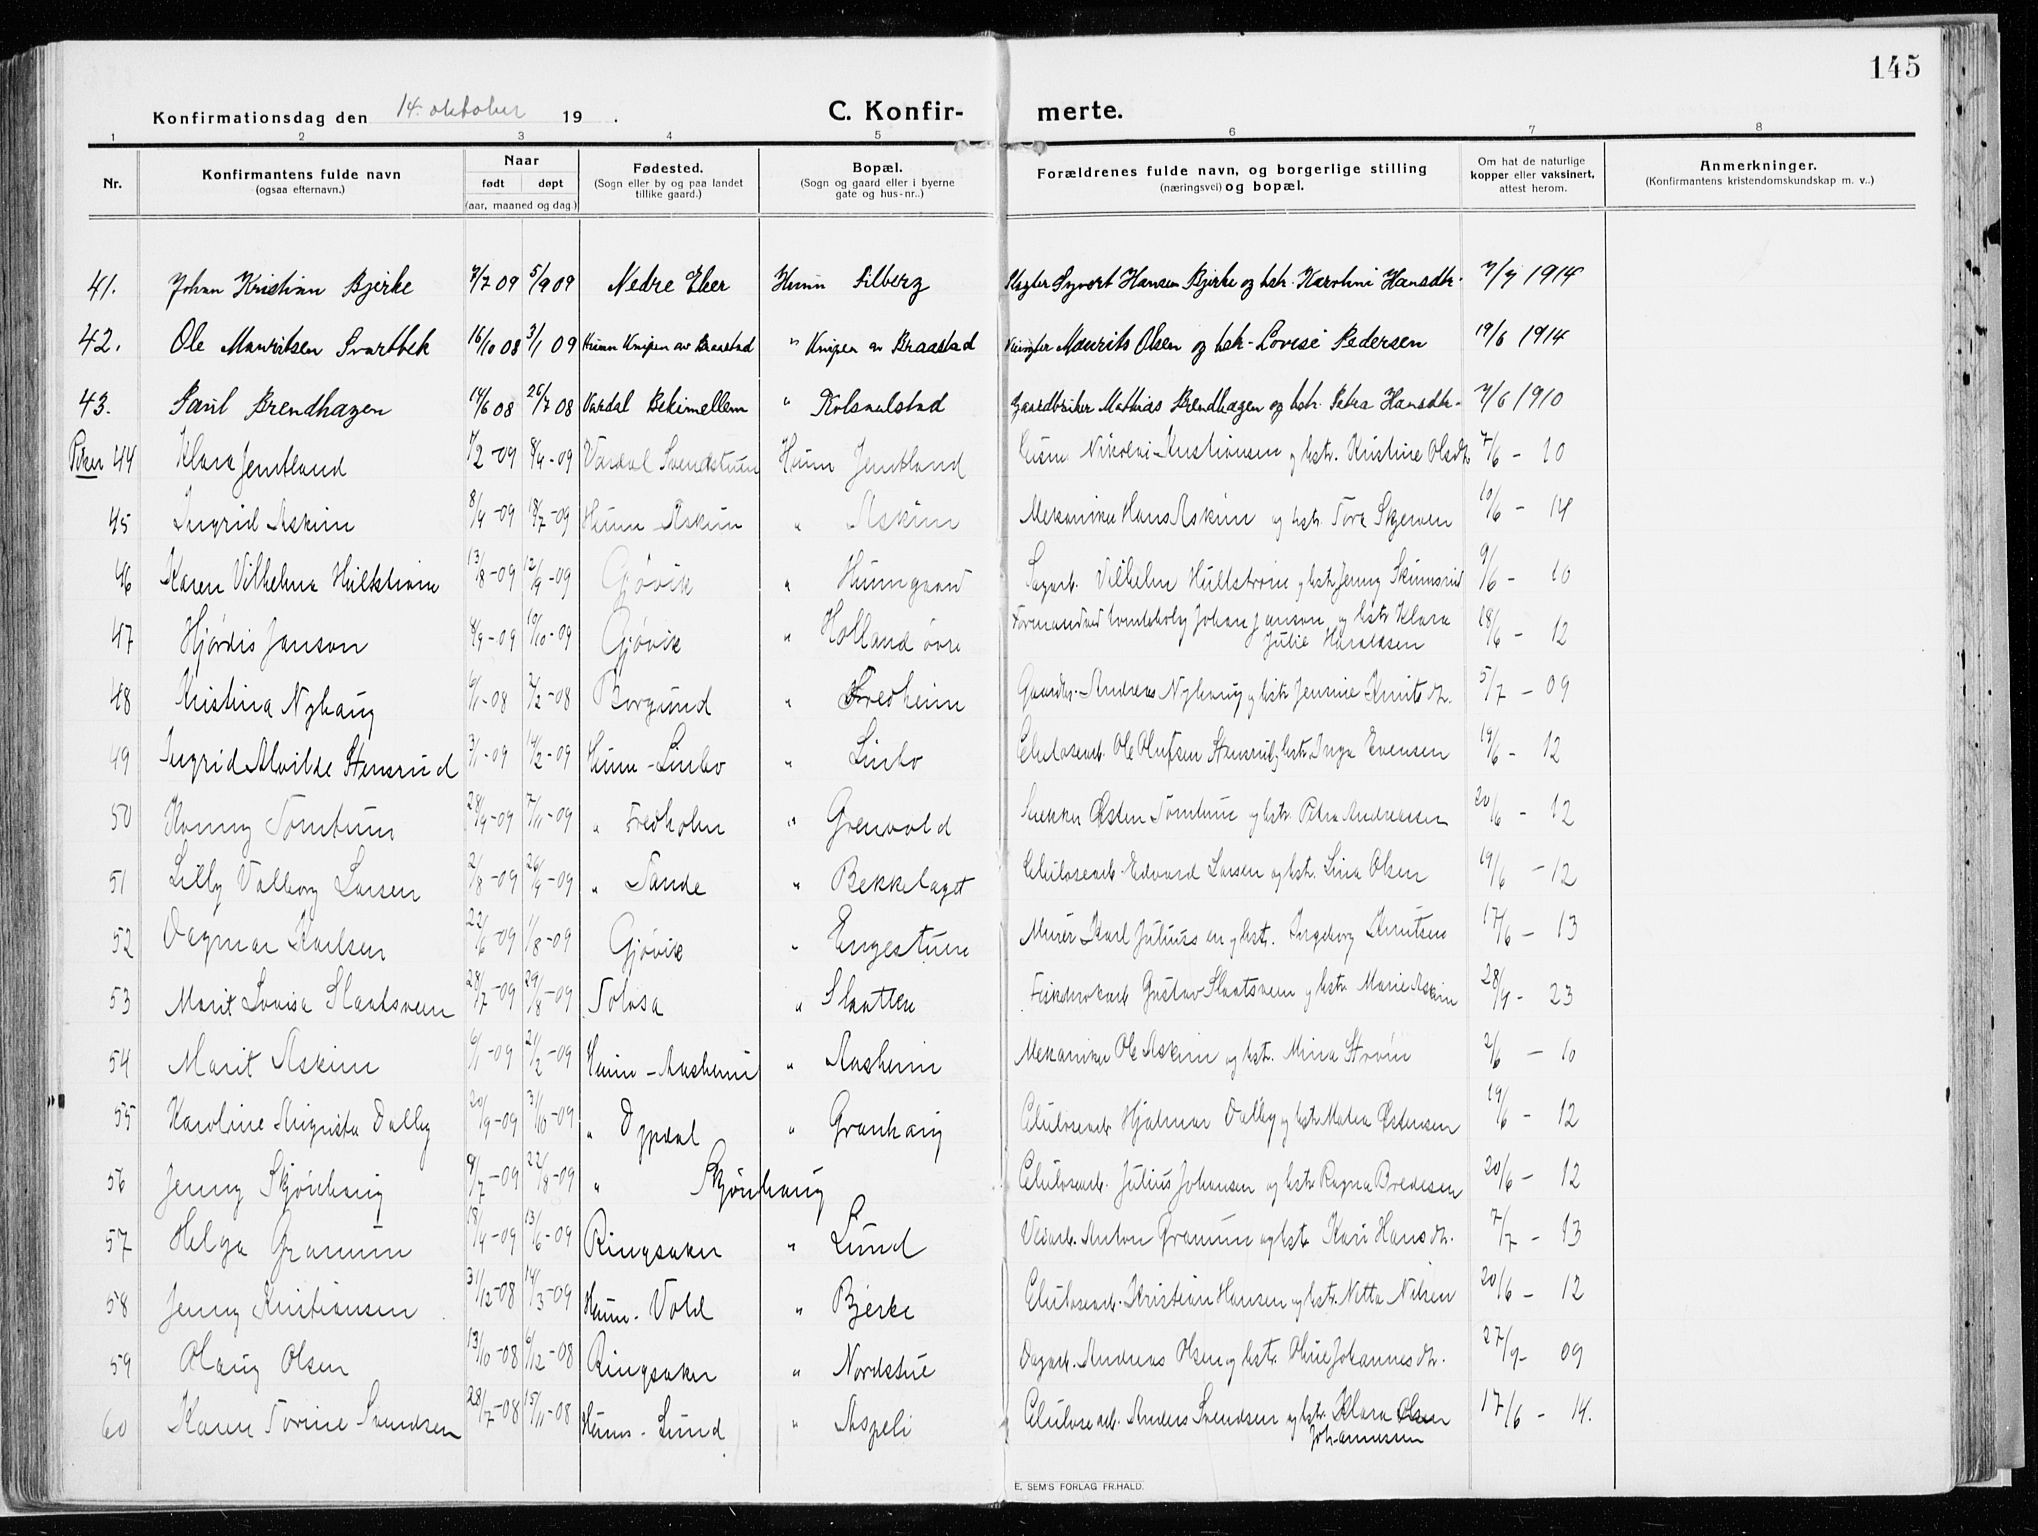 145
Konfirmationsdag den 14. oktober 19 .
C. Konfir- merte.
1 2 3 4 5 6 7 8
Nr.
Konfirmantens fulde navn
(ogsaa efternavn.)
Naar
født døpt
(aar, maaned og dag.)
Fødested.
(Sogn eller by og paa landet
tillike gaard.)
Bopæl.
(Sogn og gaard eller i byerne
gate og hus-nr..)
Forældrenes fulde navn, og borgerlige stilling
(næringsvei) og bopæl.
Om hat de naturlige
kopper eller vaksinert,
attest herom.
Anmerkninger.
(Konfirmantens kristendomskundskap m. v..)
41. Johan Kristian Bjerke 7/7 09 5/9 09 Nedre Eker Hunn Lilberg Sigvart Hansen Bjerke og hstr. Karoline Hansdtr. 7/7 1914
42. Ole Mauritsen Svartbek 16/10 08 3/1 09 Hunn Knipen av Braastad " Knipen av Braastad Maurits Olsen og hstr. Lovise Pedersen 19/6 1914
43. Paul Brendhagen 14/6 08 26/7 08 Vardal Bekimellem " Kolsvelstad Gaardbruker Mathias Brendhagen og hstr. Petra Hansdtr. 7/6 1910
Piker 44 Klara Jemtland 1/2 -09 8/4 -09 Vardal Svendstuen Hunn Jemtland Kristiansen og hstr. Kristine Olsdtr. 7/6 - 10
45 Ingrid Askim 8/4 -09 18/7 -09 Hunn Askim " Askim Mekaniker Hans Askim og hstr. Tora Skjerven 10/6 - 14
46 Karen Vilhelma Hultstrøm 13/8 -09 12/9 -09 Gjøvik " Hunngaard Sagarb. Vilhelm Hultstrøm og hstr. Jenny Skinnsrud 9/6 - 10
47 Hjørdis Janson 8/9 -09 10/10 -09 Gjøvik " Holland øvre Formand ved Johan Janson og hstr. Klara
Julie Haraldsen 18/6 - 12
48 Kristina Nyhaug 6/1 -08 2/2 -08 Borgund " Fredheim Gaardbr. Andreas Nyhaug og hstr. Jennie Knuts dtr. 5/7 - 09
49 Ingrid Alvilde Stensrud 3/1 -09 14/2 -09 Hunn - Linbo " Linbo Celulosearb. Ole Olufsen Stensrud og hstr. Inga Evensen 19/6 - 12
50 Konny Tomtum 28/9 -09 7/11 -09 " Fredholm " Grenvold Snekker Østen Tomtum og hstr. Petra Andreassen 20/6 - 12
51 Lilly Valborg Larsen 2/8 -09 26/9 -09 " Sande " Bekkelaget Celulosearb. Edvard Larsen og hstr. Lina Olsen 19/6 - 12
52 Dagmar Karlsen 22/6 -09 1/8 -09 Gjøvik " Engestuen Murer Karl Juliussen og hstr. Ingeborg Knutsen 17/6 - 13
53 Marit Lovisa Slaatsveen 28/7 -09 29/8 -09 Tolosa " Slaatten Gustav Slaatsveen og hstr. Marie Askim 28/9 - 23
54 Marit Askim 6/1 -09 21/2 -09 Hunn - Aasheim " Aasheim Mekaniker Ole Askim og hstr. Mina Strøm 2/6 - 10
55 Karoline Augusta Dalby 20/9 -09 31/10 -09 " Dypdal " Granhaug Celulosearb. Hjalmar Dalby og hstr. Matea Østensen 19/6 - 12
56 Jenny Skjønhaug 9/7 -09 22/8 -09 " Skjønhaug Celulosearb. Julius Johansen og hstr. Ragna Bredesen 20/6 - 12
57 Helga Granum 18/4 -09 13/6 -09 Ringsaker " Lund Veiarb. Anton Granum og hstr. Kari Hans dtr. 7/7 - 13
58 Jenny Kristiansen 31/12 -08 14/3 -09 Hunn - Vold " Bjerke Celulosearb. Kristian Hansen og hstr. Netta Nilsen 20/6 - 12
59 Olaug Olsen 13/10 -08 6/12 -08 Ringsaker " Nordstue Dagarb. Andreas Olsen og hstr. Oline Johannes dtr. 27/9 - 09
60 Karen Torine Svendsen 28/7 -08 15/11 -08 Hunn - Lund " Aspeli Celulosearb. Anders Svendsen og hstr. Klara Olsen
Johannessen 17/6 - 14.
E. SEM'S FORLAG FR.HALD.